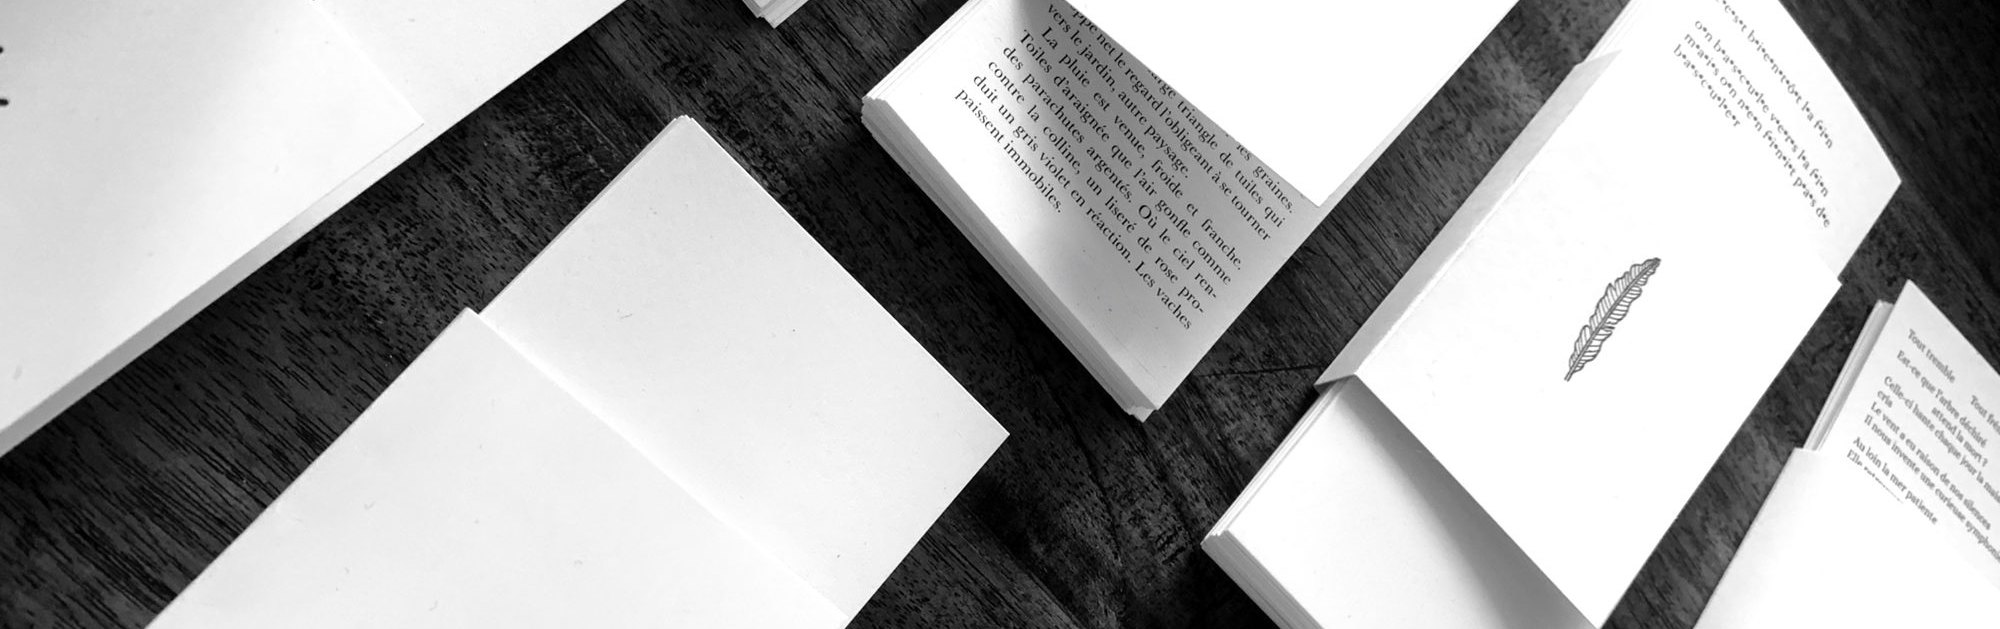 les graines.
large triangle de tuiles qui
net le regard l'obligeant à se tourner
vers le jardin, autre paysage.
La pluie est venue, froide et franche.
Toiles d'araignée que l'air gonfle comme
des parachutes argentés. Où le ciel ren-
contre la colline, un liseré de rose pro-
duit un gris violet en réaction. Les vaches
paissent immobiles.
b•i•e•n•t•ô•t l•a f•i•n
o•n b•a•s•c•u•l•e v•e•r•s l•a f•i•n
m•a•i•s o•n n•e•n f•i•n•i•t p•a•s d•e
b•a•s•c•u•l•e•r
Tout tremble
Tout
Est-ce que l'arbre déchiré
attend la mort ?
Celle-ci hante chaque jour la
cria
Le vent a eu raison de nos silences
Il nous invente une curieuse
Au loin la mer patiente
Elle